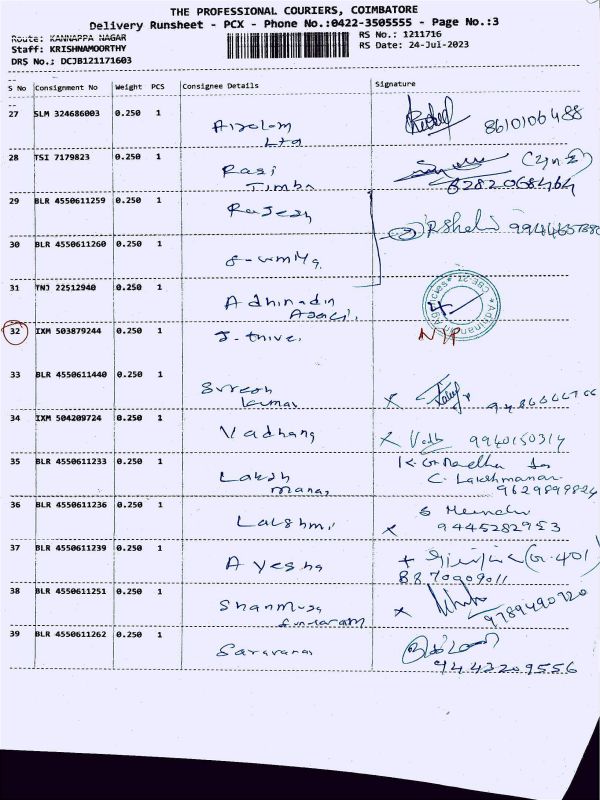 THE PROFESSIONAL COURIERS, COIMBATORE
Delivery Runsheet - PCX - Phone No.:0422-3505555 - Page No.:3
Route: KANNAPPA NAGAR
RS No.: 1211716
Staff: KRISHNAMOORTHY
RS Date: 24-Jul-2023
DRS No.: DCJB121171603
S No Consignment No Weight PCS Consignee Details Signature
27 SLM 324686003 0.250 1
Ltd 8610106488
28 TSI 7179823 0.250 1 Rasi
Timba 8282068464
29 BLR 4550611259 0.250 1 Rajesh
30 BLR 4550611260 0.250 1
31 TNJ 22512940 0.250 1 Adhinadin
32 IXM 503879244 0.250 1
33 BLR 4550611440 0.250 1 Suresh
kumar
34 IXM 504209724 0.250 1 Vadhana 9940150314
35 BLR 4550611233 0.250 1 Laksh
manan C. Lakshmanan
9629899824
36 BLR 4550611236 0.250 1 Lakshmi
9445282953
37 BLR 4550611239 0.250 1 Ayesha (G-401)
8870909011
38 BLR 4550611251 0.250 1 Shanmuga
Sundaram 9789490920
39 BLR 4550611262 0.250 1 Saravanan
9443209556